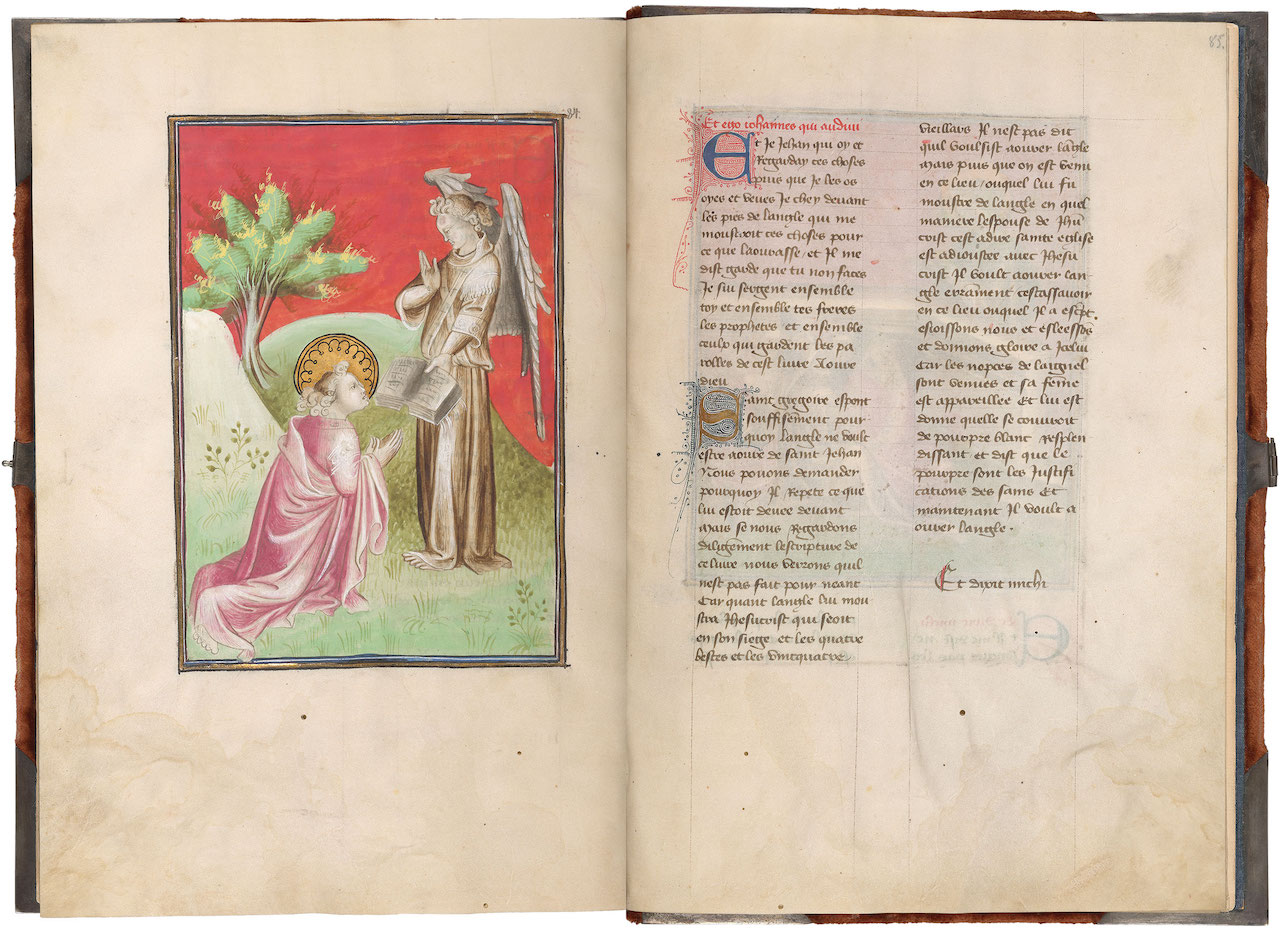 84.
85.
Et ego Iohannes qui audivi
Et Je Jehan qui oy et
Regarday ces choses
puis que Je les os
oyes et veues Je chey devant
les pies de langle qui me
moustroit ces choses pour
ce que laourasse / et Il me
dist garde que tu non faces
Je sui sergent ensemble
toy et ensemble tes freres
les prophetes et ensemble
ceulx qui gardent les pa
rolles de cest livre Aoure
dieu
Saint gregoire espont
souffisement pour
quoy langle ne voult
estre aoure de saint Jehan
Nous povons demander
pourquoy Il Repete ce que
lui estoit devee devant
Mais se nous Regardons
diligement lescripture de
ce livre nous verrons quil
nest pas fait pour neant
Car quant langle lui mou
stra Jhesucrist qui seoit
en son siege et les quatre
bestes et les vintquatre
vieillars Il nest pas dit
quil voulsist aourer langle
Mais puis que on est venu
en ce lieu / ouquel lui fu
moustre de langle en quel
maniere lespouse de Jhu
crist cest adire sainte eglise
est adioustee avec Jhesu
crist Il voult aourer lan
gle erraument cestassavoir
en ce lieu ouquel il a escpt.
esioissons nous et esleessos
et donnons gloire a Icelui
Car les nopces de laignel
sont venues et sa feme
est appareillee Et lui est
donne quelle se couvroit
de pourpre blanc resplen
dissant et dist que le
pourpre sont les Justifi
cations des sains Et
maintenant Il voult a
ourer langle .
Et dixit michi